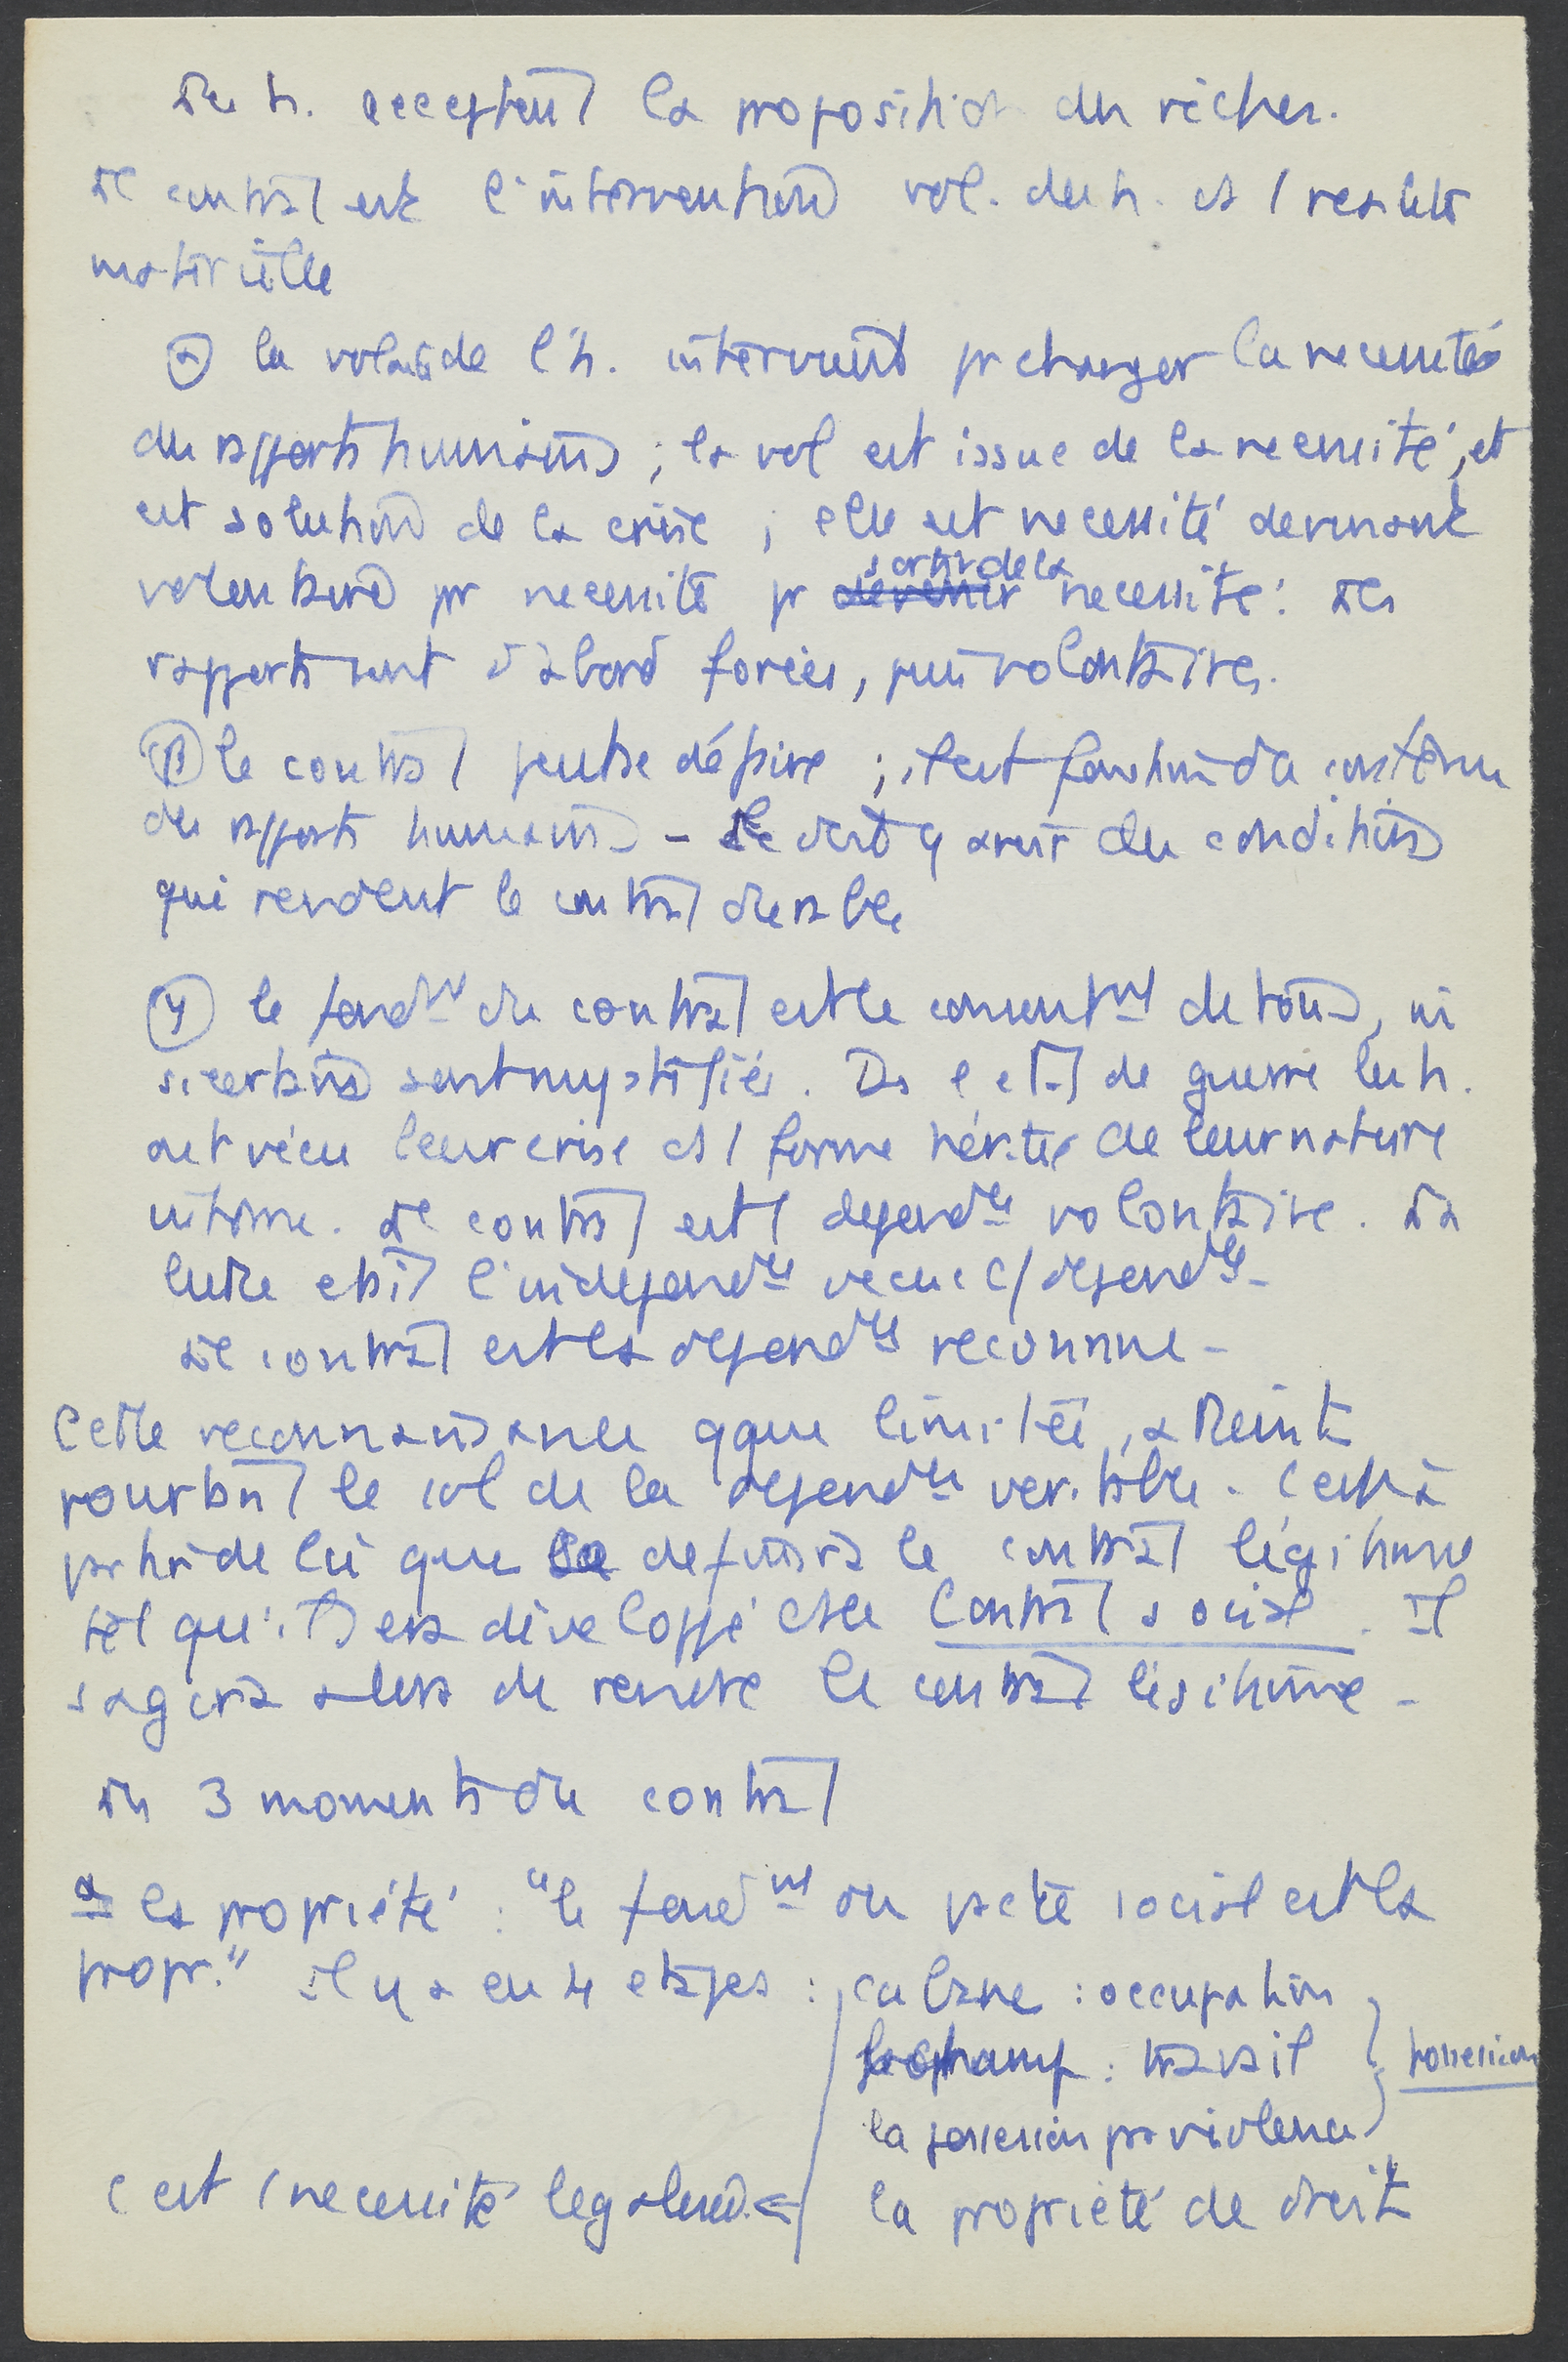 Les h. acceptent la proposition des riches.
Le contrat est l'intervention vol. des h. ds / réalité
matérielle
α la volonté de l'h. intervient pr changer la necessité
des rapports humains ; la vol est issue de la necessité, et
est solution de la crise ; elle est necessité devenant
volontaire pr necessité pr devenir sortir de la necessité : Les
rapports sont d'abord forcés, puis volontaires.
β le contrat peut se défaire ; il est fonction du contenu
des rapports humains - Il doit y avoir des conditions
qui rendent le contrat durable
γ le fondmt du contrat est le consentmt de tous, même
si certains sont mystifiés. Ds l'etat de guerre les h.
ont vécu leur crise ds / forme héritée de leur nature
intime. Le contrat est / dependce volontaire. La
lutte etait l'independce vecue c/ dependce -
Le contrat est la dependce reconnue -
Cette reconnaissance qque limitée, atteint
pourtant le sol de la dependce veritable. C'est à
partir de lui que se definira le contrat légitime
tel qu'il sera développé ds le Contrat social. Il
s'agira alors de rendre le contrat légitime -
Les 3 moments du contrat
α la propriété : "le fondmt du pacte social est la
propr." Il y a eu 4 etapes : cabane : occupation
le champ : travail
possession
la possession par violence
c'est / necessité legalisée <= la propriété de droit